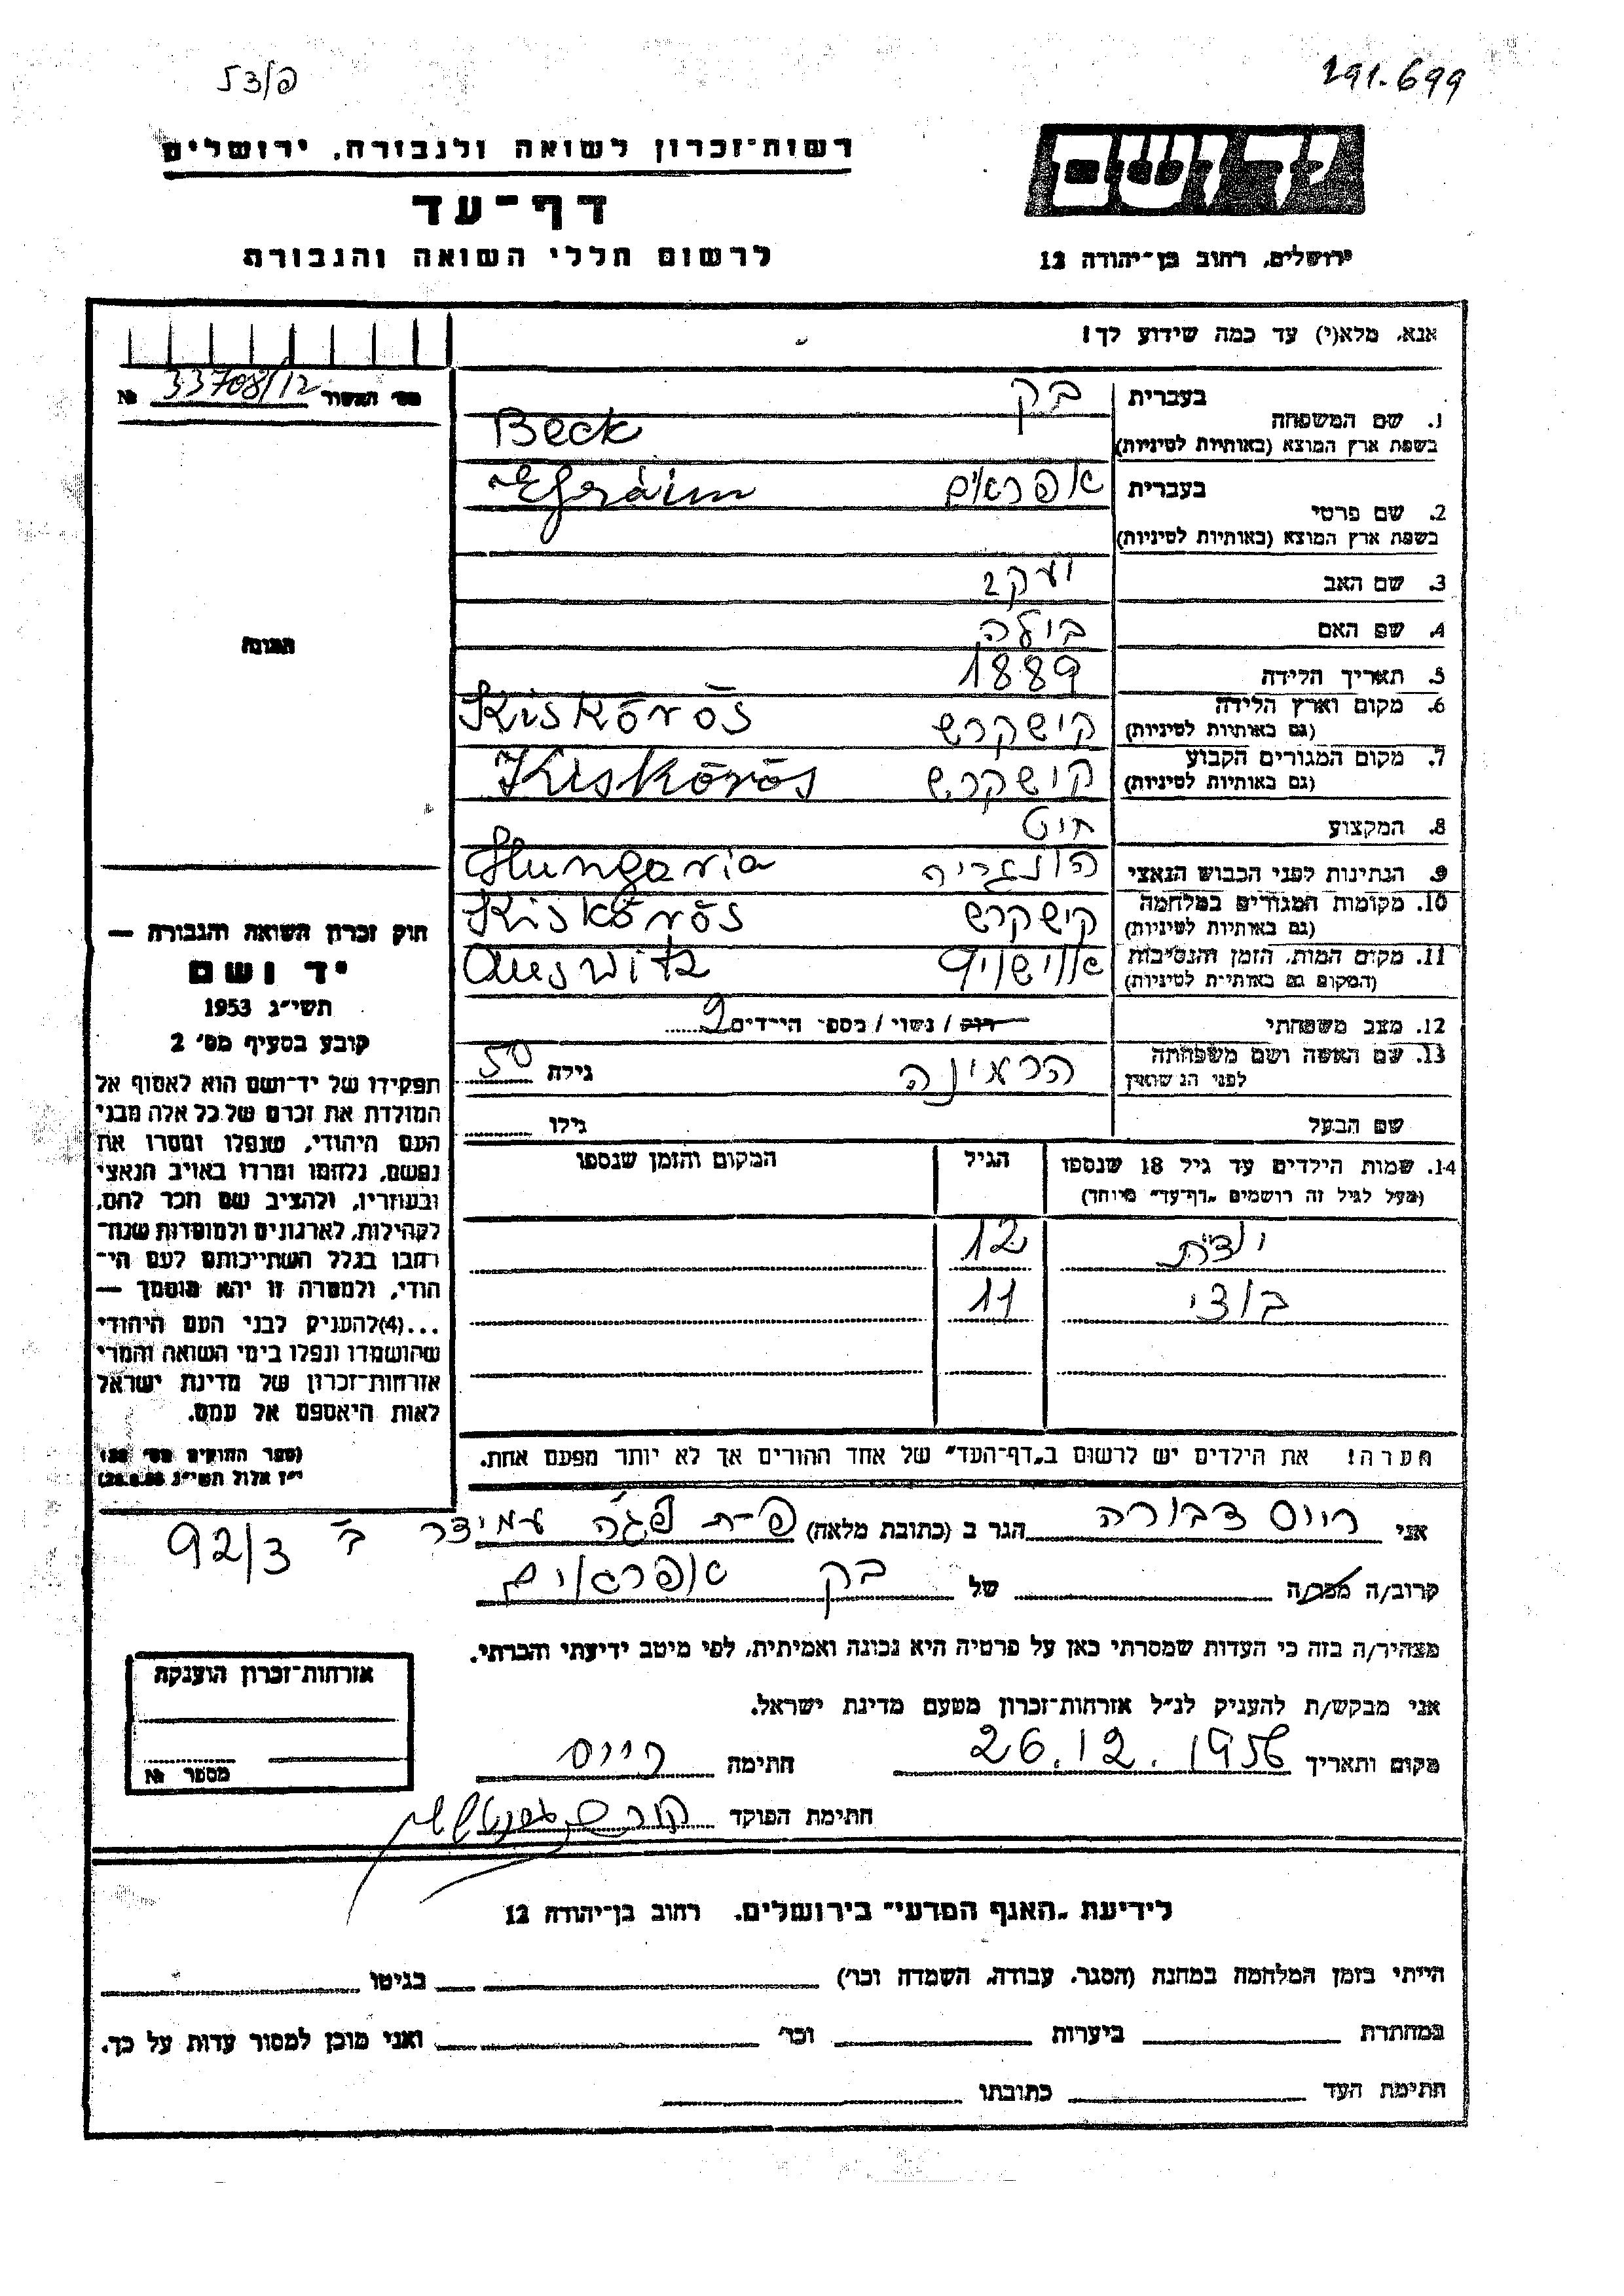 291.699
רשות־זכרון לשואה ולגבורה, ירושלים
יד ושם
דף־עד
לרשום חללי השואה והגבורה
ירושלים, רחוב בן־יהודה 12
אנא, מלא(י) עד כמה שידוע לך!
מס׳ האשור 33708/12 №
1. שם המשפחה
בעברית בק
בשפת ארץ המוצא (באותיות לטיניות) Beck
2. שם פרטי
בעברית אפראים Efráim
בשפת ארץ המוצא (באותיות לטיניות)
3. שם האב יעקב
4. שם האם בילה
5. תאריך הלידה 1889
6. מקום וארץ הלידה קישקרש Kiskőrős
(גם באותיות לטיניות)
7. מקום המגורים הקבוע קישקרש Kiskőrős
(גם באותיות לטיניות)
8. המקצוע חיט
9. הנתינות לפני הכבוש הנאצי הונגריה Hungaria
10. מקומות המגורים במלחמה קישקרש Kiskőrős
(גם באותיות לטיניות)
11. מקום המות, הזמן והנסיבות אוישויץ Auswitz
(המקום גם באותיות לטיניות)
12. מצב משפחתי רווק / נשוי / מספר הילדים 2
13. שם האשה ושם משפחתה הרמינה גילה 50
לפני הנשואין
שם הבעל גילו
14. שמות הילדים עד גיל 18 שנספו הגיל המקום והזמן שנספו
(מעל לגיל זה רושמים „דף־עד״ מיוחד)
12
11
הערה! את הילדים יש לרשום ב„דף־העד״ של אחד ההורים אך לא יותר מפעם אחת.
התמונה
חוק זכרון השואה והגבורה —
יד ושם
תשי״ג 1953
קובע בסעיף מס׳ 2
תפקידו של יד־ושם הוא לאסוף אל
המולדת את זכרם של כל אלה מבני
העם היהודי, שנפלו ומסרו את
נפשם, נלחמו ומרדו באויב הנאצי
ובעוזריו, ולהציב שם וזכר להם,
לקהילות, לארגונים ולמוסדות שנח־
רבו בגלל השתייכותם לעם הי־
הודי, ולמטרה זו יהא מוסמך —
...(4)להעניק לבני העם היהודי
שהושמדו ונפלו בימי השואה והמרי
אזרחות־זכרון של מדינת ישראל
לאות היאספם אל עמם.
(ספר החוקים מס׳
י״ז אלול תשי״ג
אני רייס דבורה הגר ב (כתובת מלאה) פ״ת פגה עמידר ב׳ 92/3
קרוב/ה מכר/ה של בק אפראים
מצהיר/ה בזה כי העדות שמסרתי כאן על פרטיה היא נכונה ואמיתית, לפי מיטב ידיעתי והכרתי.
אני מבקש/ת להעניק לנ״ל אזרחות־זכרון מטעם מדינת ישראל.
מקום ותאריך 26.12.1956 חתימה רייס
חתימת הפוקד
אזרחות־זכרון הוענקה
מספר №
לידיעת „האגף המדעי״ בירושלים. רחוב בן־יהודה 12
הייתי בזמן המלחמה במחנה (הסגר, עבודה, השמדה וכו׳) בגיטו
במחתרת ביערות וכו׳ ואני מוכן למסור עדות על כך.
חתימת העד כתובתו